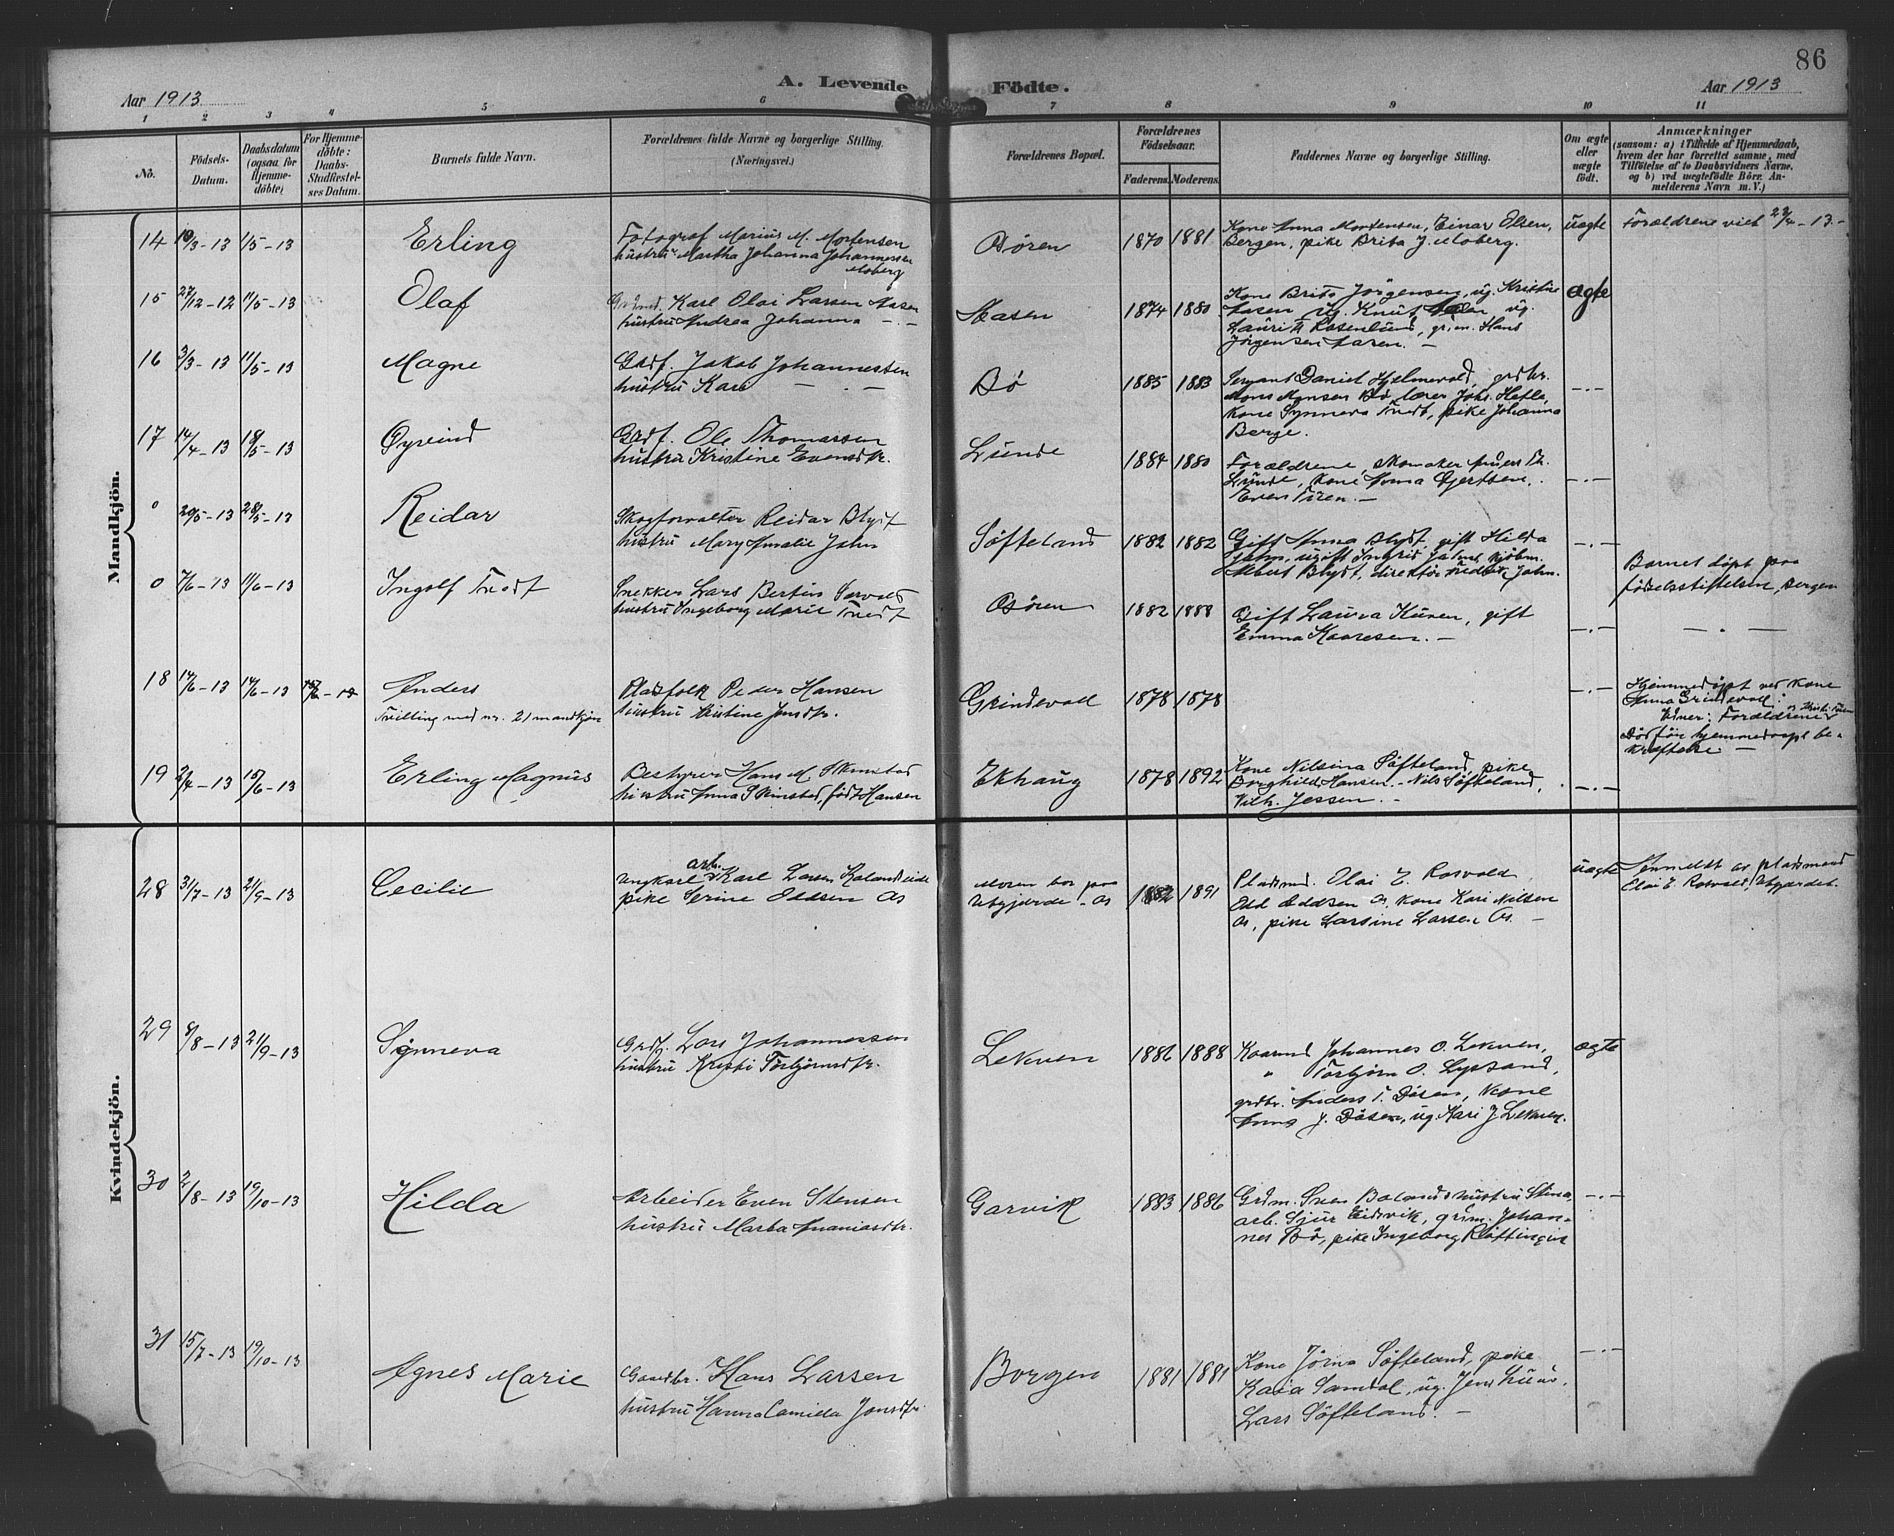 86
A. Levende Födte.
Aar 1913
Aar 1913
1 2 3 4 5 6 7 8 9 10 11
No.
Födsels-Datum.
Daabsdatum (ogsaa for Hjemme-döbte)
For Hjemme-döbte: Daabs-Stadfæstel-ses Datum.
Barnets fulde Navn.
Forældrenes fulde Navne og borgerlige Stilling. (Næringsvei.)
Forældrenes Bopæl.
Forældrenes Födselsaar.
Faderens. Moderens.
Faddernes Navne og borgerlige Stilling.
Om ægte eller uægte födt.
Anmærkninger
(saasom: a) i Tilfælde af Hjemmedaab,
hvem der har forrettet samme, med
Tilföielse af to Daabsvidners Navne,
og b) ved uægtefödte Börn An-
melderens Navn m. V.)
Mandkjön.
14 19/3-13 1/5-13 Erling
Fotograf Marius M. Mortensen
hustru Martha Johanna Johannessen
Moberg
Osøren 1870 1881
Kone Anna Mortensen, Einar Olsen,
Bergen, pike Brita J. Moberg.
uægte
Forældrene viet
15 27/12-12 11/5-13 Olaf
Karl Olai Larsen Aasen
hustru Andrea Johanna -.-
Aasen 1874 1880
Kone Brita Jørgensen, ug. Kristine
Aasen, ug. Knut
Laurits Rosenlund, grm. Hans
Jørgensen Aasen. -
ægte
16 3/3-13 11/5-13 Magne
Grdf. Jakob Johannessen
hustru Kari -.-
Bø 1885 1883
Sersjant Daniel Hjelmevold, grdbr.
Mons Monsen Bø, lærer Johs. Hatle,
kone Synneva Tuedt, pike Johanna
Berge.
-.-
17 14/4-13 Øyvind
Grdf. Ole Thomassen
hustru Kristine Evensdtr.
Lunde 1884 1880
Forældrene, skomaker
Lunde, kone Anna Gjertsen,
Even -
-.-
0 20/5-13 Reidar
Skogforvalter Reidar Blydt
hustru Mary Amalie Jahn
Søfteland 1882 1882
Gift Anna Blydt, gift Hilda
Jahn, ugift Ingrid
Albert Blydt, direktør Jahn.
-.-
0 7/6-13 11/6-13 Ingolf Tuedt
Snekker Lars Bertin
hustru Ingeborg Marie Tuedt
Osøren 1882 1888
Gift Laura Kuven, gift
Emma Kaaresen. -
-.-
Barnet døpt paa
fødselsstiftelsen, Bergen
- . -
18 14/6-13 14/6-13 Anders
Tvilling med nr. 21 mandkjøn
Pladsfolk Peder Hansen
hustru Kristine Jonsdtr.
Grindevoll 1878 1878
-.-
Hjemmedøpt ved kone
Anna Grindevoll.
Vidner: Forældrene
Død før hjemmedaapt be-
kræftelse -
19 2/4-13 15/6-13 Erling Magnus
Bestyrer Hans M. Skimstad
hustru Anna Skimstad, født Hansen
Ekhaug 1878 1892
Kone Nilsina Søfteland, pike
Borghild Hansen. - Nils Søfteland,
Vilh. Jessen. -
-.-
Kvindekjön.
28 31/7-13 21/9-13 Cecilie
arb.
ungkarl Karl Larsen Kolandseide
pike Serine Oddsen Os
Moren bor paa
Utgjærde - Os
1882 1891
Pladsmd. Olai E. Rosvold,
Odd Oddsen Os, kone Kari Nilsen
Os, pike Larsine Larsen Os. -
uægte
Anmeldt av pladsmand
Olai E. Rosvold, Utgjærdet.
29 8/8-13 21/9-13 Synneva
Grdf. Lars Johannessen
hustru Kristi Torbjørnsdtr.
Lekven 1886 1888
Kaarmd Johannes O. Lekven,
" Torbjørn O. Lyssand,
grdbr. Anders T. Døsen, kone
Anna J. Døsen, ug. Kari J. Lekven.
ægte
30 2/8-13 19/10-13 Hilda
Arbeider Even Stensen
hustru Marta Ananiasdtr.
Garvik 1883 1886
Grdm. Sven Boland & hustru Stina,
arb. Sjur Eidsvik, grdm. Johan-
nes Bø, pike Ingeborg Røttingen
-.-
31 15/7-13 19/10-13 Agnes Marie
Gaardbr. Hans Larsen
hustru Hanna Camilla Jonsdtr.
Borgen 1881 1881
Kone Jørna Søfteland, pike
Kaia Samdal, ug. Jens Kuven,
Lars Søfteland. -
-.-